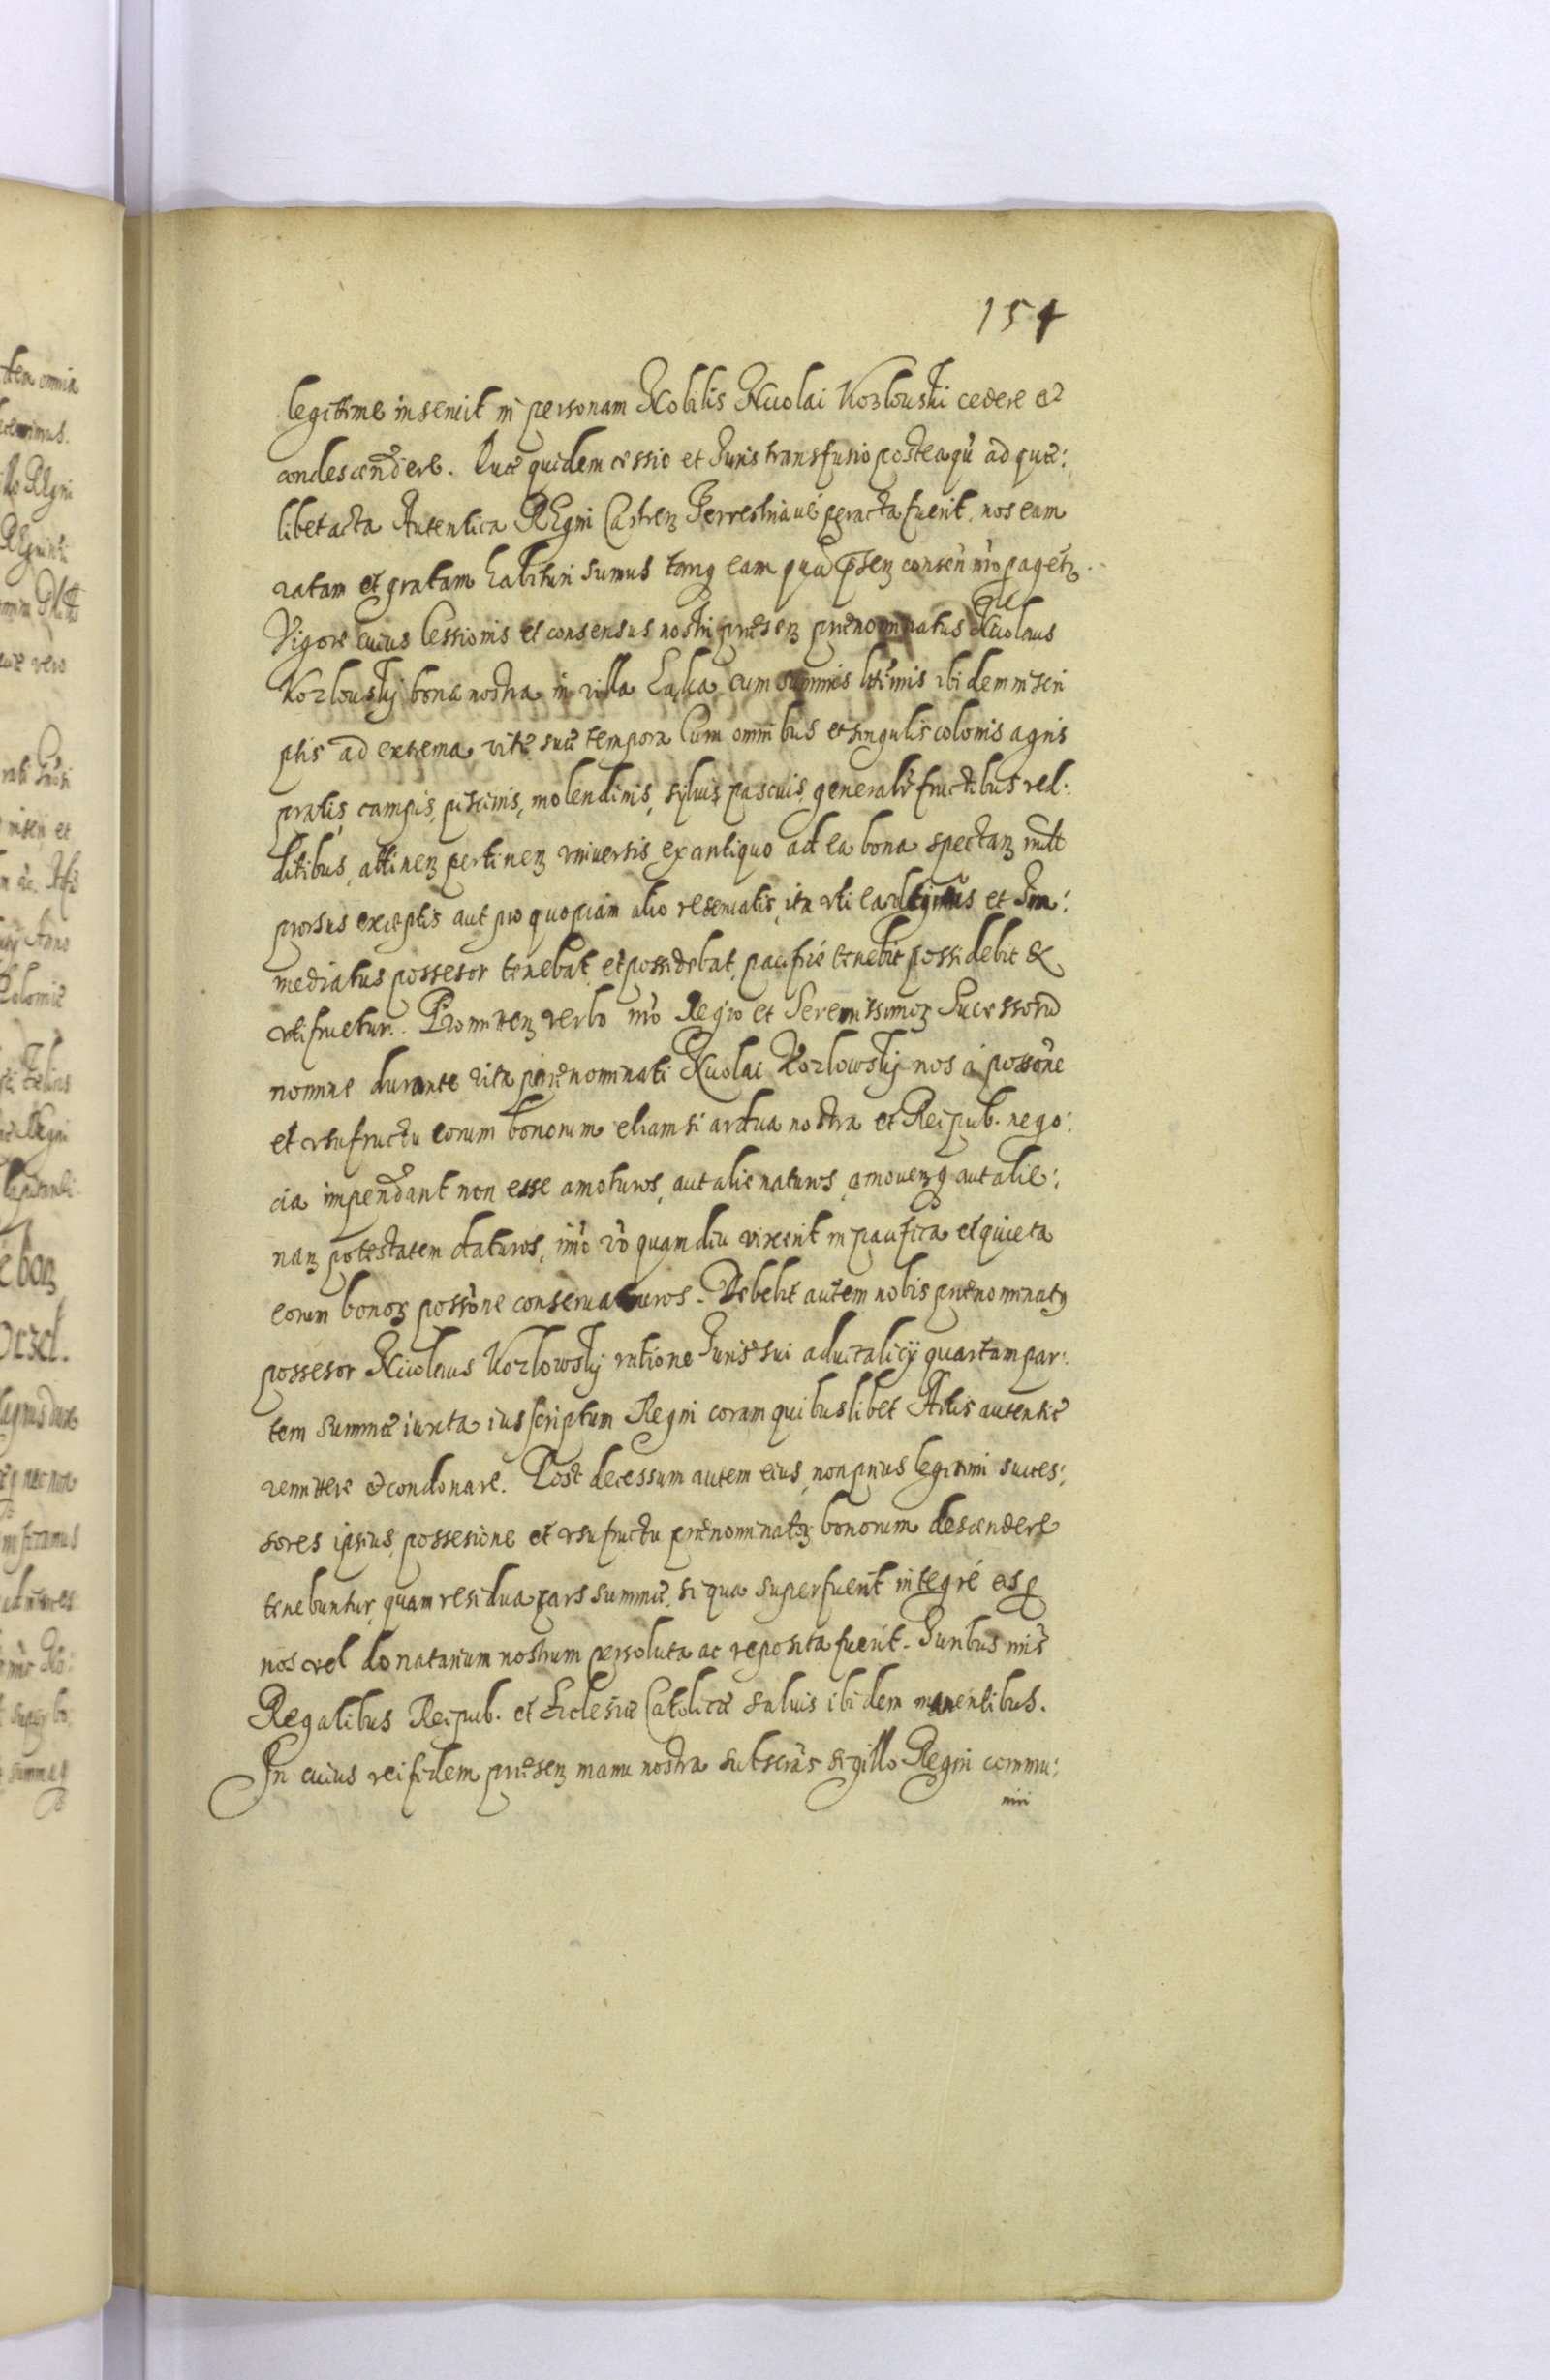 154
legittime inseruit in personam Nobilis Nicolai Kozlouski cedere et
condescendere. Quæ quidem cessio et Juris transfusio posteaqũ ad quæ:
libet acta Autentica REgni Castren Terrestriaue peracta fuerit, nos eam
ratam et gratam habituri sumus tanq eam quã pñsen consen nro
Vigore cuius Cessionis et consensus nostri præsen prænominatus Nicolaus
Kozlouskij bona nostra in villa cum summis ibidem inscri
ptis ad extrema vitæ suæ tempora Cum omnibus et singulis colonis agris
pratis, campis, piscinis, molendinis, syluis, pascuis, generalr fructibus red:
ditibus, attinen pertinen vniuersis ex antiquo ad ea bona spectan null
prorsus exceptis aut pro quopiam alio reseruatis, ita vti ea et Im:
mediatus possesor tenebat et possidebat, pacifice tenebit possidebit &
vtifruetur. Promitten verbo nro Regio et Serenissimor Sucessorũ
nomine durante vita prænominati Nicolai Kozlowskij nos á possõne
et vsufructu eorum bonorum etiamsi ardua nostra et Reipub. nego:
cia impendant non esse amoturos, aut alienaturos, amouenq aut alie:
nan potestatem daturos, imo vo quamdiu vixerit in pacifica et quieta
eorum bonor possõne conseruaturos. Debebit autem nobis prænominatus
possesor Nicolaus Kozlowskij ratione Juris sui aduitalicij quartam par:
tem summæ iuxta ius scriptum Regni coram quibuslibet Actis autenticè
remittere et condonare. Post decessum autem eius, non prius legitimi succes:
sores ipsius, possesione et vsufructu prænominator bonorum descendere
tenebuntur, quam residua pars summæ, si qua superfuerit integré eis p
nos vel donatarium nostrum persoluta ac reposita fuerit. Juribus nris
Regalibus Reipub. et Eclesiæ Catolicæ saluis ibidem manentibus.
In cuius rei fidem præsen manu nostra subscras sigillo Regni commu:
niri